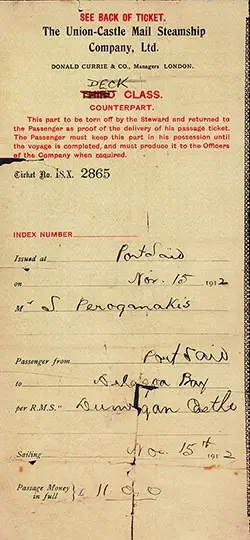 SEE BACK OF TICKET.
The Union-Castle Mail Steamship
Company, Ltd.
DONALD CURRIE & CO., Managers LONDON.
DECK
THIRD CLASS.
COUNTERPART.
This part to be torn off by the Steward and returned
to the Passenger as proof of the delivery of his passage ticket.
The Passenger must keep this part in his possession until
the voyage is completed, and must produce it to the Officers
of the Company when required.
Ticket No. 18.X. 2865
INDEX NUMBER
Issued at Port Said
on Nov. 15 1912
Mr S Peroganakis
Passenger from Port Said
to Delagoa Bay
per R.M.S. "Dunvegan Castle
Sailing Nov. 15th 1912
Passage Money
in full £ 11 0 0